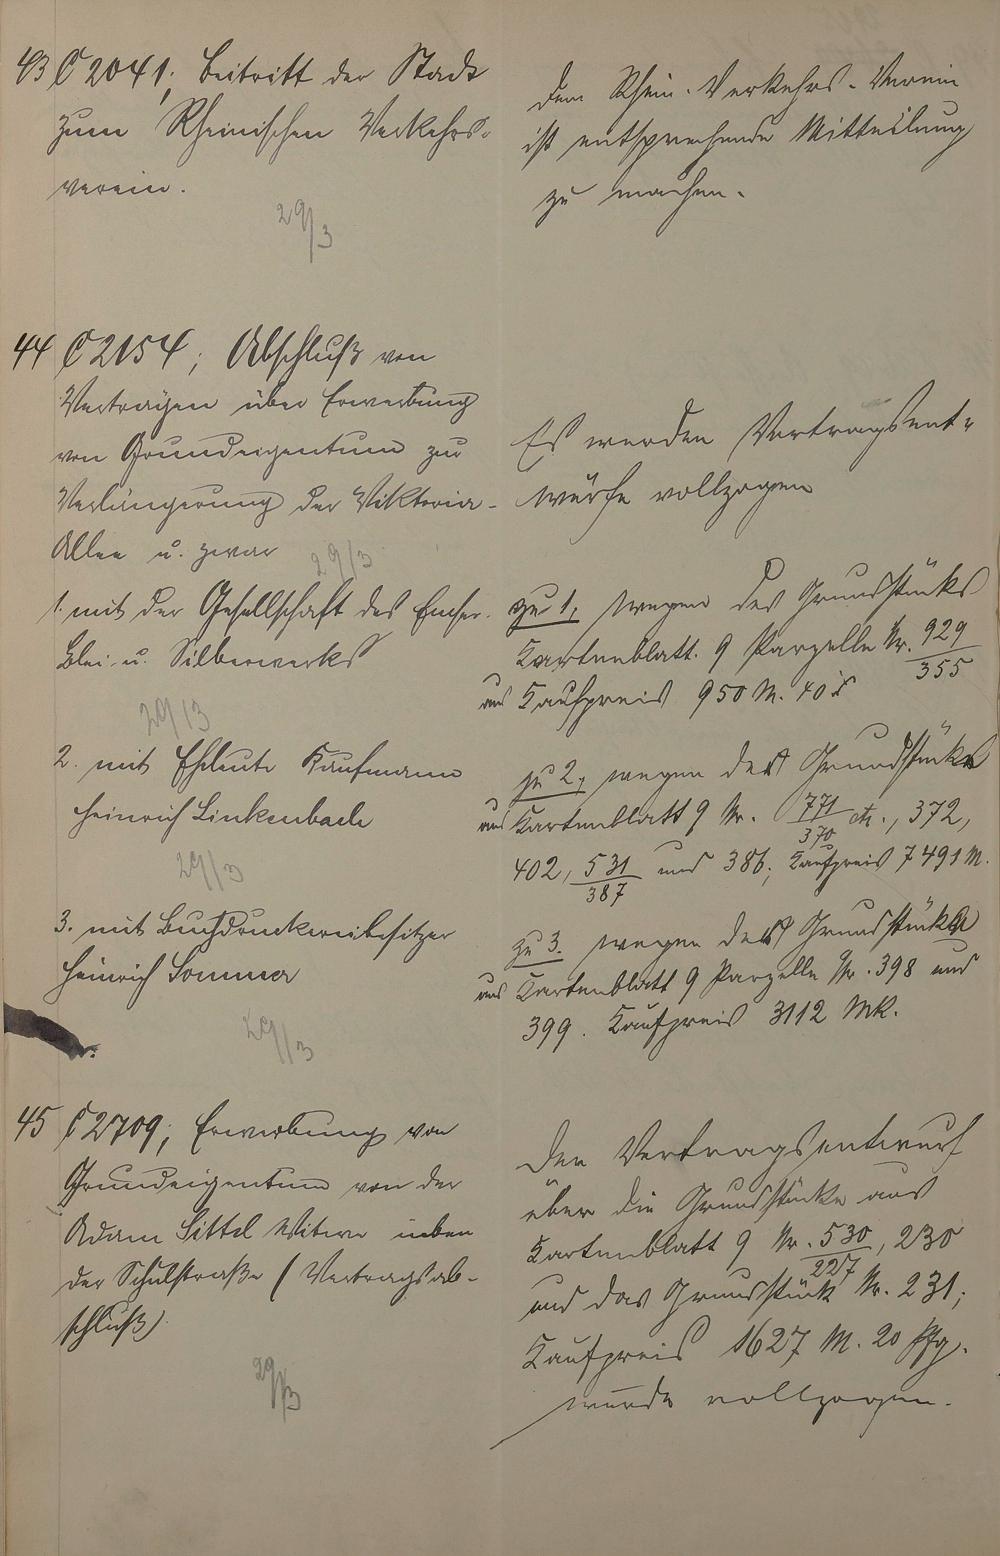 43 C 2041; Beitritt der Stadt
zum Rheinischen Verkehrs-
verein.
29/3
Dem Rhein. Verkehrs-Verein
ist entsprechende Mitteilung
zu machen.
44 C 2154; Abschluß von
Verträgen über Erwerbung
von Grundeigentum zur
Verlängerung der Viktoria-
Allee u. zwar
29/3
Es werden Vertragsent-
würfe vollzogen
1. mit der Gesellschaft des Emser-
Blei- u. Silberwerks
29/3
zu 1, wegen des Grundstücks
aus Kartenblatt 9 Parzelle Nr. 929/355
Kaufpreis 950 M. 40 δ
2. mit Eheleute Kaufmann
Heinrich Linkenbach
29/3
zu 2, wegen der Grundstücke
aus Kartenblatt 9 Nr. 771/370 etc., 372,
402, 531/387 und 386; Kaufpreis 7491 M.
3. mit Buchdruckereibesitzer
Heinrich Sommer
29/3
zu 3. wegen der Grundstücke
aus Kartenblatt 9 Parzelle Nr. 398 und
399. Kaufpreis 3112 Mk.
45 C 2709; Erwerbung von
Grundeigentum von der
Adam Sittel Witwe neben
der Schulstraße (Vertragsab-
schluß)
29/3
Der Vertragsentwurf
über die Grundstücke aus
Kartenblatt 9 Nr. 530/227, 230
und das Grundstück Nr. 231;
Kaufpreis 1627 M. 20 Pfg.
wurde vollzogen.